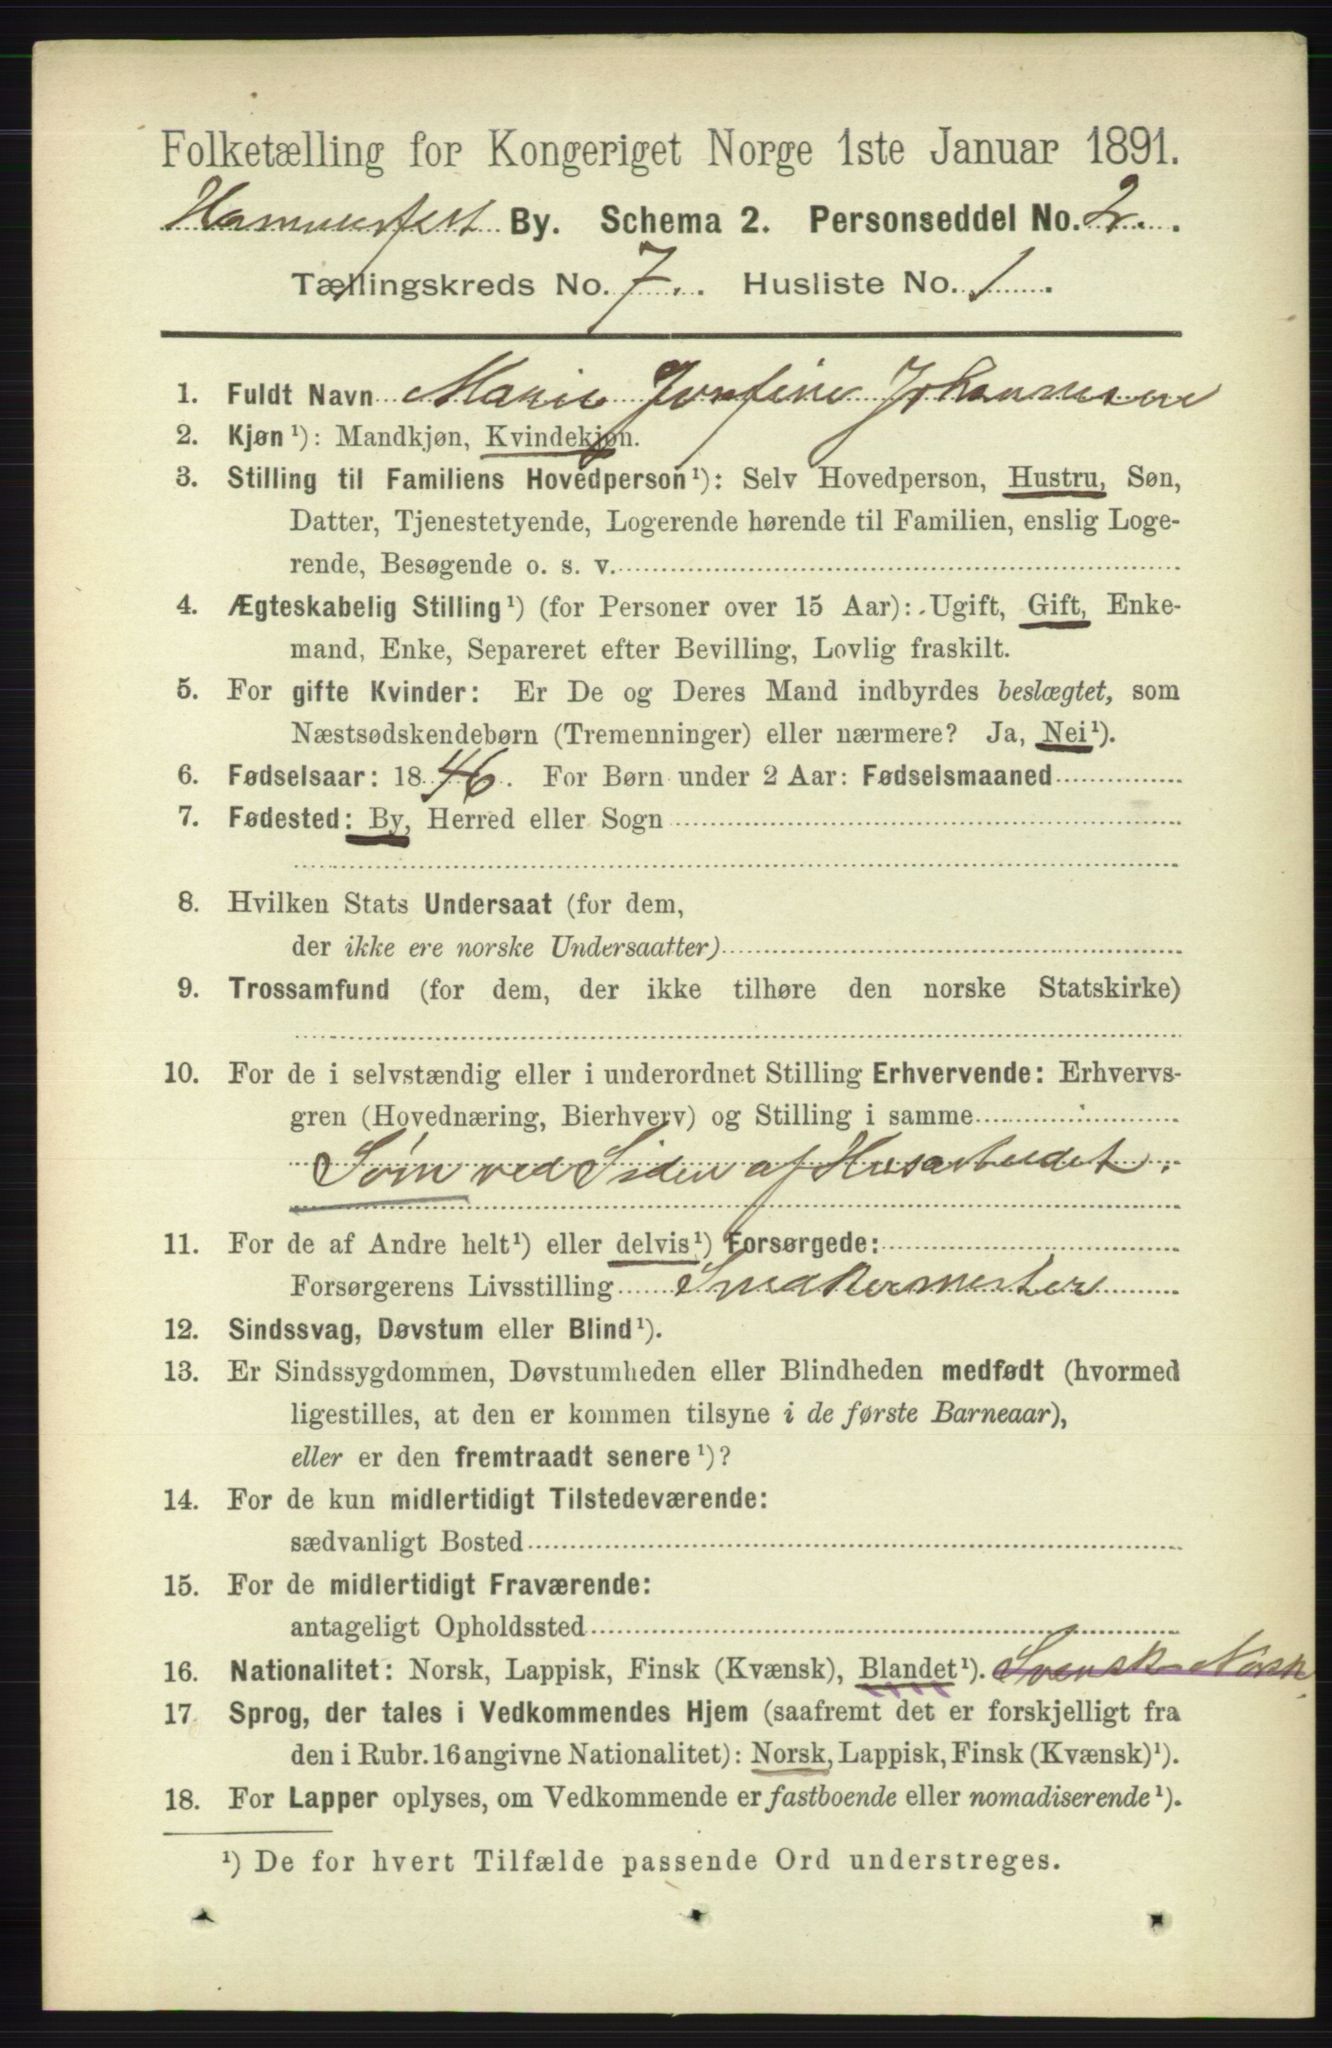 Folketælling for Kongeriget Norge 1ste Januar 1891.
Hammerfest By. Schema 2. Personseddel No. 2.
Tællingskreds No. 7. Husliste No. 1.
1. Fuldt Navn Marie Josefine Johannesen
2. Kjøn¹): Mandkjøn, Kvindekjøn.
3. Stilling til Familiens Hovedperson¹): Selv Hovedperson, Hustru, Søn,
Datter, Tjenestetyende, Logerende hørende til Familien, enslig Loge-
rende, Besøgende o. s. v.
4. Ægteskabelig Stilling¹) (for Personer over 15 Aar): Ugift, Gift, Enke-
mand, Enke, Separeret efter Bevilling, Lovlig fraskilt.
5. For gifte Kvinder: Er De og Deres Mand indbyrdes beslægtet, som
Næstsødskendebørn (Tremenninger) eller nærmere? Ja, Nei¹).
6. Fødselsaar: 1846. For Børn under 2 Aar: Fødselsmaaned
7. Fødested: By, Herred eller Sogn
8. Hvilken Stats Undersaat (for dem,
der ikke ere norske Undersaatter)
9. Trossamfund (for dem, der ikke tilhøre den norske Statskirke)
10. For de i selvstændig eller i underordnet Stilling Erhvervende: Erhvervs-
gren (Hovednæring, Bierhverv) og Stilling i samme
Søm ved Siden af Husarbeidet.
11. For de af Andre helt¹) eller delvis¹) Forsørgede:
Forsørgerens Livsstilling Snedkermester
12. Sindssvag, Døvstum eller Blind¹).
13. Er Sindssygdommen, Døvstumheden eller Blindheden medfødt (hvormed
ligestilles, at den er kommen tilsyne i de første Barneaar),
eller er den fremtraadt senere¹)?
14. For de kun midlertidigt Tilstedeværende:
sædvanligt Bosted
15. For de midlertidigt Fraværende:
antageligt Opholdssted
16. Nationalitet: Norsk, Lappisk, Finsk (Kvænsk), Blandet¹). Svensk-Norsk.
17. Sprog, der tales i Vedkommendes Hjem (saafremt det er forskjelligt fra
den i Rubr. 16 angivne Nationalitet): Norsk, Lappisk, Finsk (Kvænsk)¹).
18. For Lapper oplyses, om Vedkommende er fastboende eller nomadiserende¹).
¹) De for hvert Tilfælde passende Ord understreges.